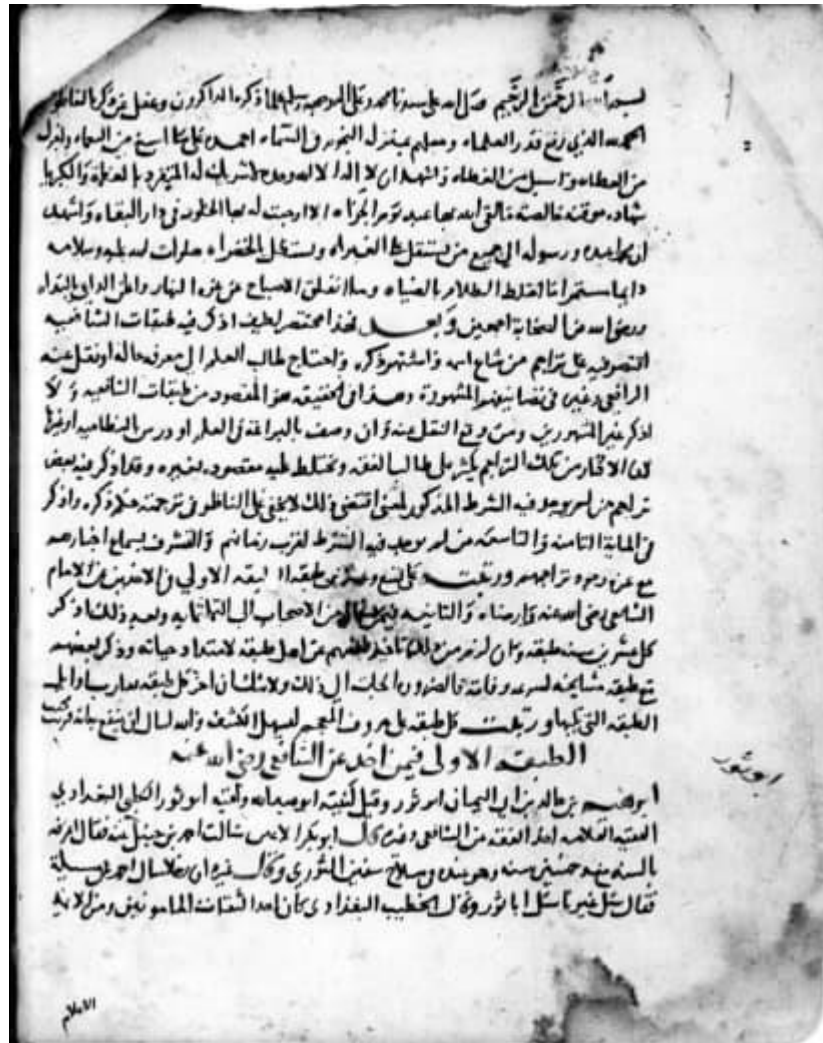 بسم الله الرحمن الرحيم صلى الله على سيدنا محمد وعلى اله وصحبه وسلم كلما ذكره الذاكرون وغفل عن ذكره الغافلون
الحمد لله الذي رفع قدر العلماء وجعلهم بمنزلة النجوم في السماء احمده على ما اسبغ من النعماء واجزل
من العطاء واسبل من الغطاء واشهد ان لا اله الا الله وحده لا شريك له المتفرد بالعظمة والكبريا
شهادة موقنة خالصة ما لقي الله بها عبد يوم الجزاء الا اوجبت له بها الخلود في دار البقاء واشهد
ان محمدا عبده ورسوله الى جميع من يستقل على الغبراء ويستظل الخضراء صلوات الله عليه وسلامه
دايما مستمرا ما اختلط الظلام بالضياء وما انفلق الاصباح عن غرة النهار واعلن الداعي بالنداء
ورضي الله عن الصحابة اجمعين وبعد فهذا مختصر لطيف اذكر فيه طبقات الشافعية
اقتصر فيه على تراجم من شاع اسمه واشتهر ذكره واحتاج طالب العلم الى معرفة حاله او نقل عنه
الرافعي وغيره في تصانيفهم المشهورة وهذا في الحقيقة هو المقصود من طبقات الشافعية ولا
اذكر غير المشهورين ومن وقع النقل عنه وان وصف بالبراعة في العلم او درس بالنظامية او غيرها
لان الاكثار من تلك التراجم يكثر على طالب الفقه ويختلط عليه مقصوده بغيره وقد اذكر فيه بعض
تراجم من لم يوجد فيه الشرط المذكور لمعنى اقتضى ذلك لا يخفى على الناظر في ترجمته عند ذكره واذكر
في الماية الثامنة والتاسعة من لم يوجد فيه الشرط لقرب زمانهم والتشرف بسماع اخبارهم
مع عزة وجود تراجمهم ورتبته على تسع وعشرين طبقة الطبقة الاولى في الاخذين عن الامام
الشافعي رضي الله عنه وارضاه والثانية فيمن من الاصحاب الى الثلثماية وبعد ذلك اذكر
كل عشرين سنة طبقة وان لزم من ذلك تاخير بعضهم عن اهل طبقة لامتداد حياته وذكر بعضهم
مع طبقة مشايخه لسرعة وفاته فالضرورة الجات الى ذلك ولا شك ان اخر كل طبقة تقارب اوايل
الطبقة التي تليها ورتبت كل طبقة على حروف المعجم ليسهل الكشف والله اسال ان ينفع به انه قريب
الطبقة الاولى فيمن اخذ عن الشافعي رضي الله عنه
ابو ثور
ابرهيم بن خالد بن ابي اليمان ابو ثور وقيل كنيته ابو عبد الله ولقبه ابو ثور الكلبي البغدادي
الفقيه العلامة اخذ الفقه عن الشافعي وغيره قال ابو بكر الاعين سالت احمد بن حنبل عنه فقال اعرفه
بالسنة منذ خمسين سنة وهو عندي في مسلاخ سفين الثوري وقال غيره ان رجلا سال احمد عن مسلة
فقال سل غيرنا سل ابا ثور وقال الخطيب البغدادي كان احد الثقات المامونين ومن الايمة
الاعلام